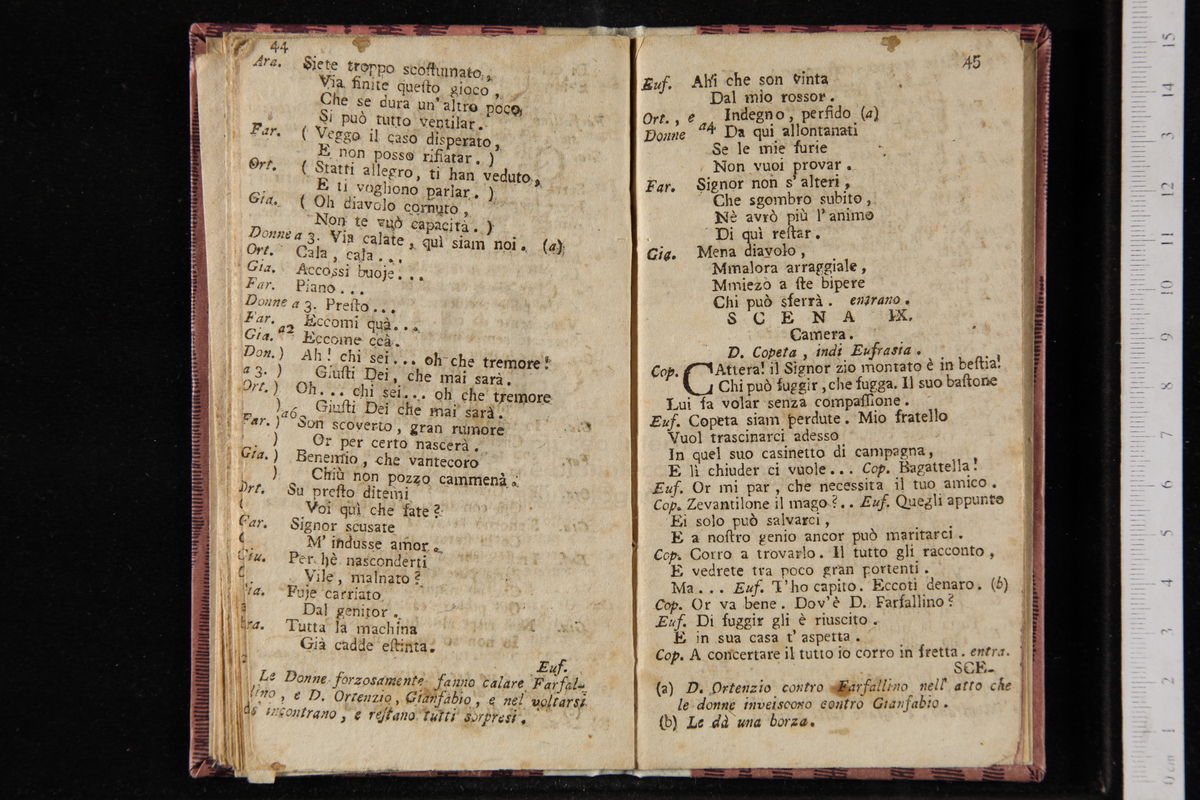 44
Ara. Siete troppo scoſtumato,
Via finite queſto gioco,
Che se dura un' altro poco,
Si può tutto ventilar.
Far. ( Veggo il caso disperato,
E non posso rifiatar. )
Ort. ( Statti allegro, ti han veduto,
E ti vogliono parlar. )
Gia. ( Oh diavolo cornuto,
Non te vuò capacità. )
Donne a 3. Via calate, quì siam noi. (a)
Ort. Cala, cala...
Gia. Accossì buoje...
Far. Piano...
Donne a 3. Preſto...
Far. Eccomi quà...
Gia. a2 Eccome ccà.
Don. ) Ah! chi sei... oh che tremore!
a 3. ) Giuſti Dei, che mai sarà.
Ort. ) Oh... chi sei... oh che tremore
) a6 Giuſti Dei che mai sarà.
Far. ) Son scoverto, gran rumore
) Or per certo nascerà.
Gia. ) Benemio, che vantecoro
) Chiù non pozzo cammenà.
Ort. Su preſto ditemi
Voi quì che fate?
Far. Signor scusate
M' indusse amor.
Giu. Perchè nasconderti
Vile, malnato?
Gia. Fuje carriato
Dal genitor.
Ara. Tutta la machina
Già cadde eſtinta.
Euf.
Le Donne forzosamente fanno calare Farfal-
lino, e D. Ortenzio, Gianfabio, e nel voltarsi
s' incontrano, e reſtano tutti sorpresi.
45
Euf. Ahi che son vinta
Dal mio rossor.
Ort., e Indegno, perfido (a)
Donne a4 Da qui allontanati
Se le mie furie
Non vuoi provar.
Far. Signor non s' alteri,
Che sgombro subito,
Nè avrò più l' animo
Di quì reſtar.
Gia. Mena diavolo,
Mmalora arraggiale,
Mmiezo a ſte bipere
Chi può sferrà. entrano.
SCENA IX.
Camera.
D. Copeta, indi Eufrasia.
Cop. CAttera! il Signor zio montato è in beſtia!
Chi può fuggir, che fugga. Il suo baſtone
Lui fa volar senza compaſſione.
Euf. Copeta siam perdute. Mio fratello
Vuol trascinarci adesso
In quel suo casinetto di campagna,
E lì chiuder ci vuole... Cop. Bagattella!
Euf. Or mi par, che necessita il tuo amico.
Cop. Zevantilone il mago?.. Euf. Quegli appunto
Ei solo può salvarci,
E a noſtro genio ancor può maritarci.
Cop. Corro a trovarlo. Il tutto gli racconto,
E vedrete tra poco gran portenti.
Ma... Euf. T'ho capito. Eccoti denaro. (b)
Cop. Or va bene. Dov'è D. Farfallino?
Euf. Di fuggir gli è riuscito.
E in sua casa t' aspetta.
Cop. A concertare il tutto io corro in fretta. entra.
SCE-
(a) D. Ortenzio contro Farfallino nell' atto che
le donne inveiscono contro Gianfabio.
(b) Le dà una borza.